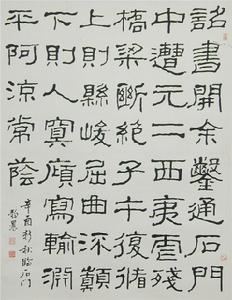 詔書開余鑿通石門
中遭元二西夷虐殘
橋梁斷絕子午復循
上則縣峻屈曲流顛
下則入寞廎寫輸淵
平阿涼常蔭
辛酉秋臨石门